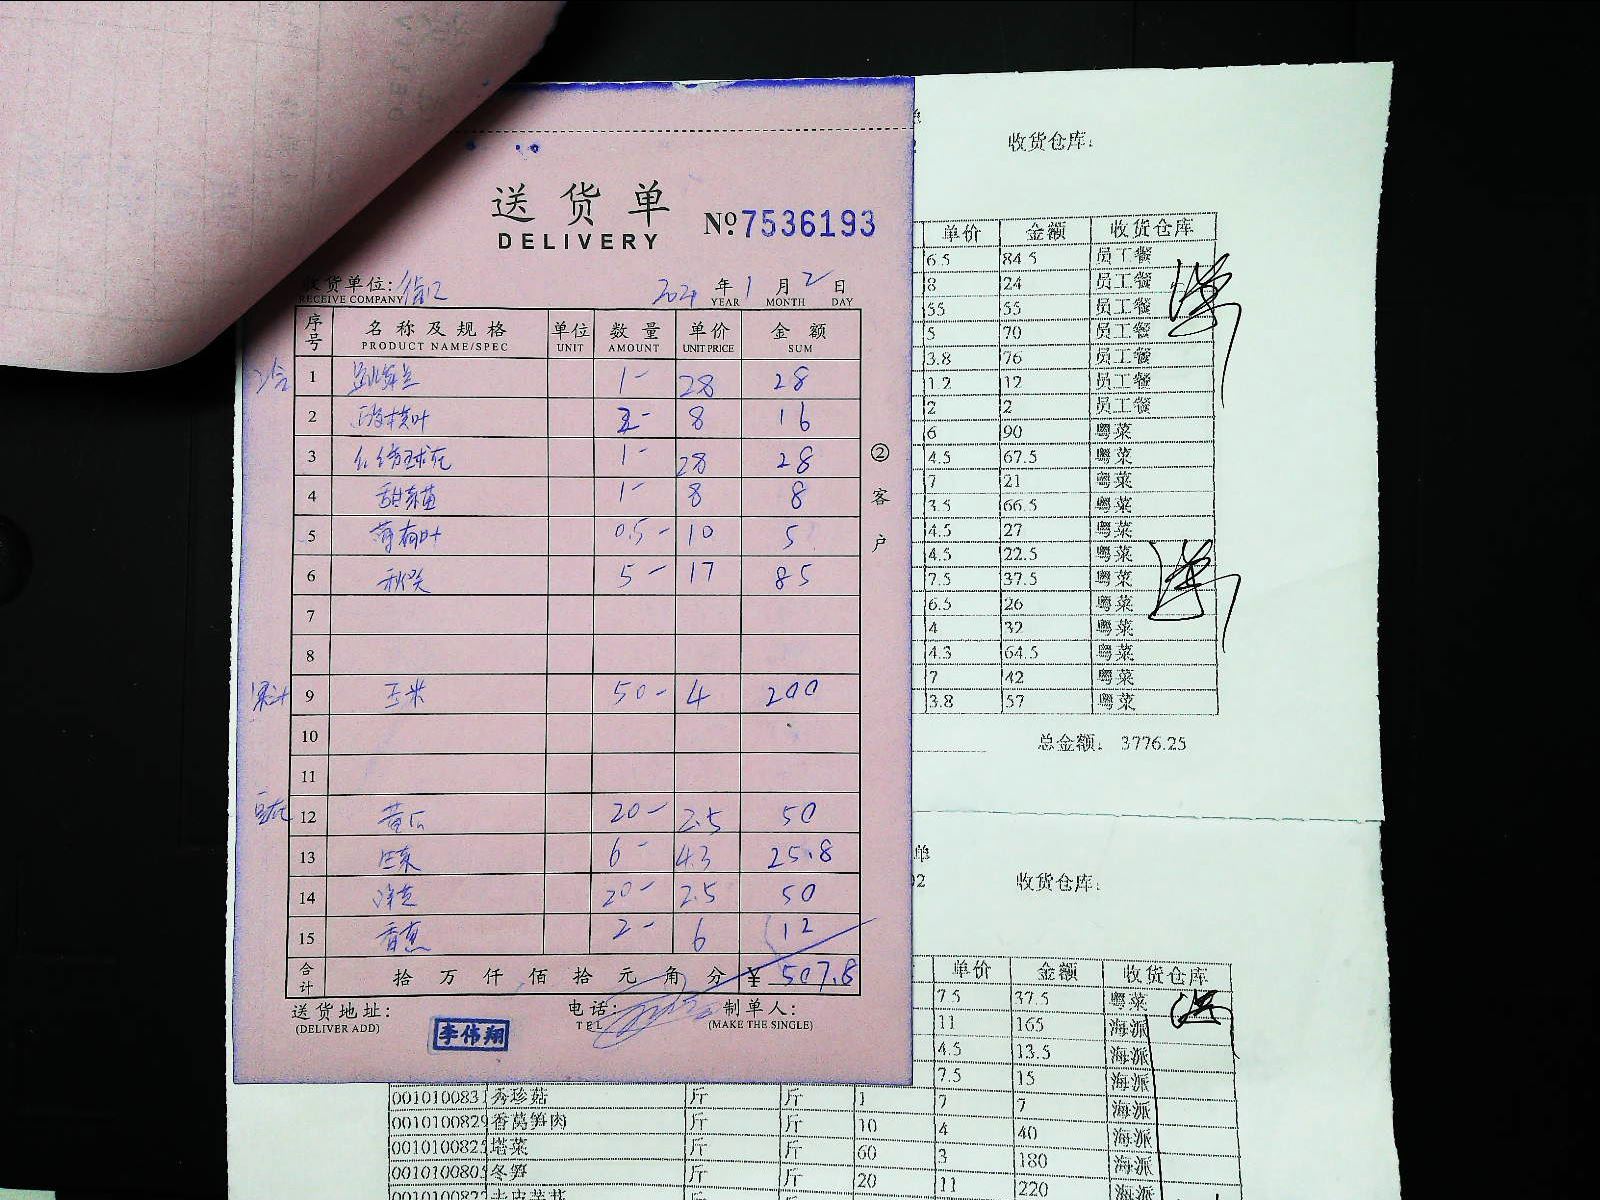 送货单
DELIVERY
№ 7536193
收货单位:
RECEIVE COMPANY
2021 年 1 月 2 日
YEAR MONTH DAY
序号 名称及规格 单位 数量 单价 金额
PRODUCT NAME/SPEC UNIT AMOUNT UNIT PRICE SUM
1 1- 28 28
2 2- 8 16
3 1- 28 28
4 1- 8 8
5 0.5- 10 5
6 秋葵 5- 17 85
7
8
9 玉米 50- 4 200
10
11
12 黄瓜 20- 2.5 50
13 6- 4.3 25.8
14 20- 2.5 50
15 香蕉 2- 6 12
合计 拾万仟佰拾元角分 ¥ 507.8
送货地址: 电话: 制单人:
(DELIVER ADD) TEL (MAKE THE SINGLE)
李伟翔
②客户
收货仓库:
单价 金额 收货仓库
6.5 84.5 员工餐
8 24 员工餐
55 55 员工餐
5 70 员工餐
3.8 76 员工餐
1.2 12 员工餐
2 2 员工餐
6 90 粤菜
4.5 67.5 粤菜
7 21 粤菜
3.5 66.5 粤菜
4.5 27 粤菜
4.5 22.5 粤菜
7.5 37.5 粤菜
6.5 26 粤菜
4 32 粤菜
4.3 64.5 粤菜
7 42 粤菜
3.8 57 粤菜
总金额: 3776.25
单
02 收货仓库:
单价 金额 收货仓库
7.5 37.5 粤菜
11 165 海派
4.5 13.5 海派
7.5 15 海派
0010100831 秀珍菇 斤 斤 1 7 7 海派
0010100829 香莴笋肉 斤 斤 10 4 40 海派
001010082 塔菜 斤 斤 60 3 180 海派
001010080 冬笋 斤 斤 20 11 220 海派